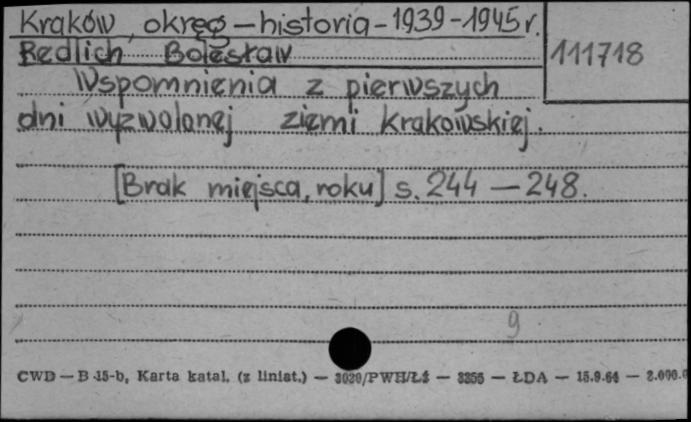 Kraków, okręg – historia – 1939 – 1945 r.
111718
Redlich Bolesław
Wspomnienia z pierwszych
dni wyzwolonej ziemi krakowskiej.
[Brak miejsca, roku] s. 244 – 248.
9
CWD – B 15-b, Karta katal. (z liniat.) – 3020/PWH/Łź – 3355 – ŁDA – 15.9.64 – 2.000.0